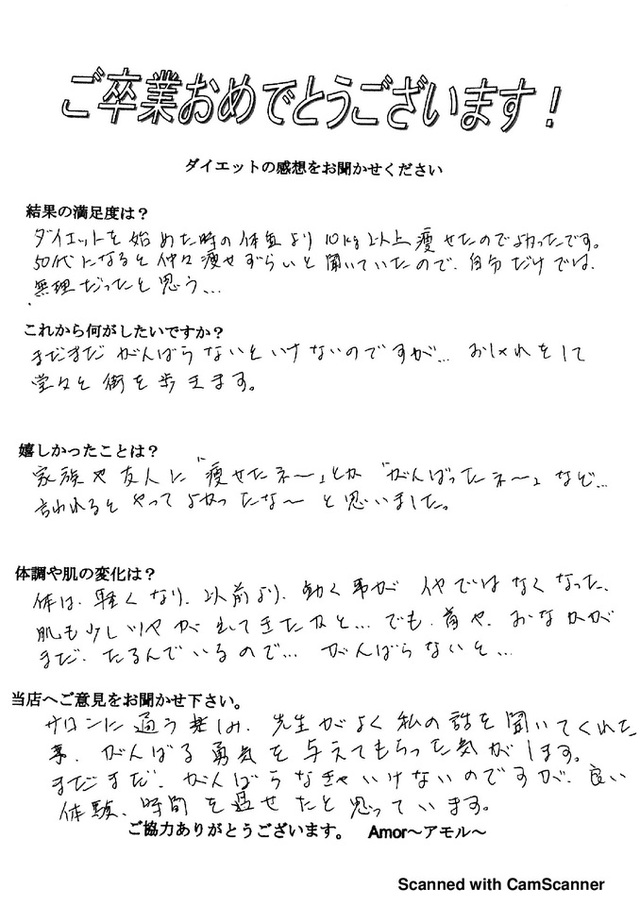 ご卒業おめでとうございます!
ダイエットの感想をお聞かせください
結果の満足度は？
ダイエットを始めた時の体重より10kg以上痩せたのでよかったです。
50代になると仲々痩せずらいと聞いていたので、自分だけでは、
無理だったと思う…
これから何がしたいですか？
まだまだがんばらないといけないのですが… おしゃれをして
堂々と街を歩きます。
嬉しかったことは？
家族や友人に"痩せたネ～」とか"がんばったネ～」など…
言われるとやってよかったな～と思いました。
体調や肌の変化は？
体は、軽くなり、以前より、動く事がイヤではなくなった、
肌も少しツヤが出てきたなと… でも、首や、おなかが
まだ、たるんでいるので… がんばらないと…
当店へご意見をお聞かせ下さい。
サロンに通う楽しみ、先生がよく私の話を聞いてくれた
事、がんばる勇気を与えてもらった気がします。
まだまだ、がんばらなきゃいけないのですが、良い
体験、時間を過せたと思っています。
ご協力ありがとうございます。 Amor～アモル～
Scanned with CamScanner